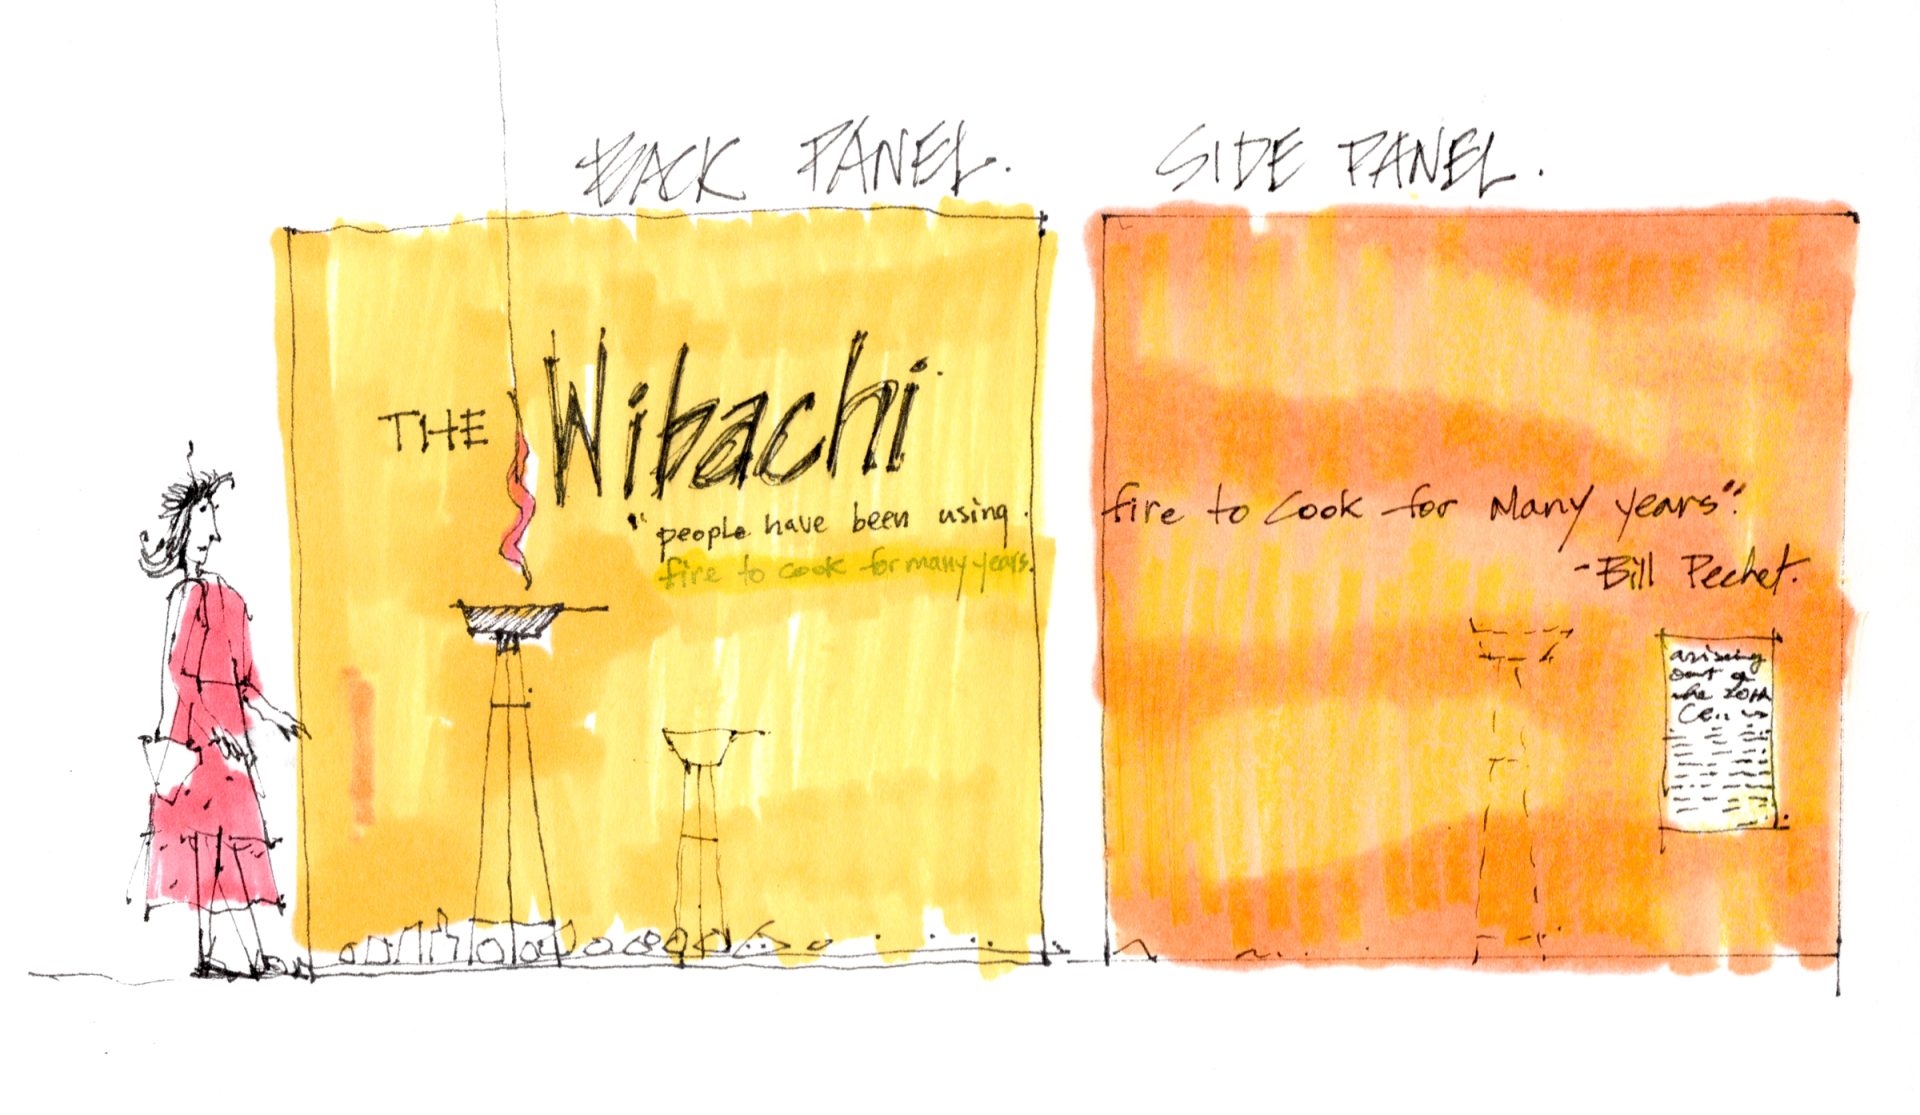 BACK PANEL.
THE Wibachi
"people have been using.
fire to cook for many years.
SIDE PANEL.
fire to Cook for Many years".
-Bill Pechet.
arising
out of
the 20th